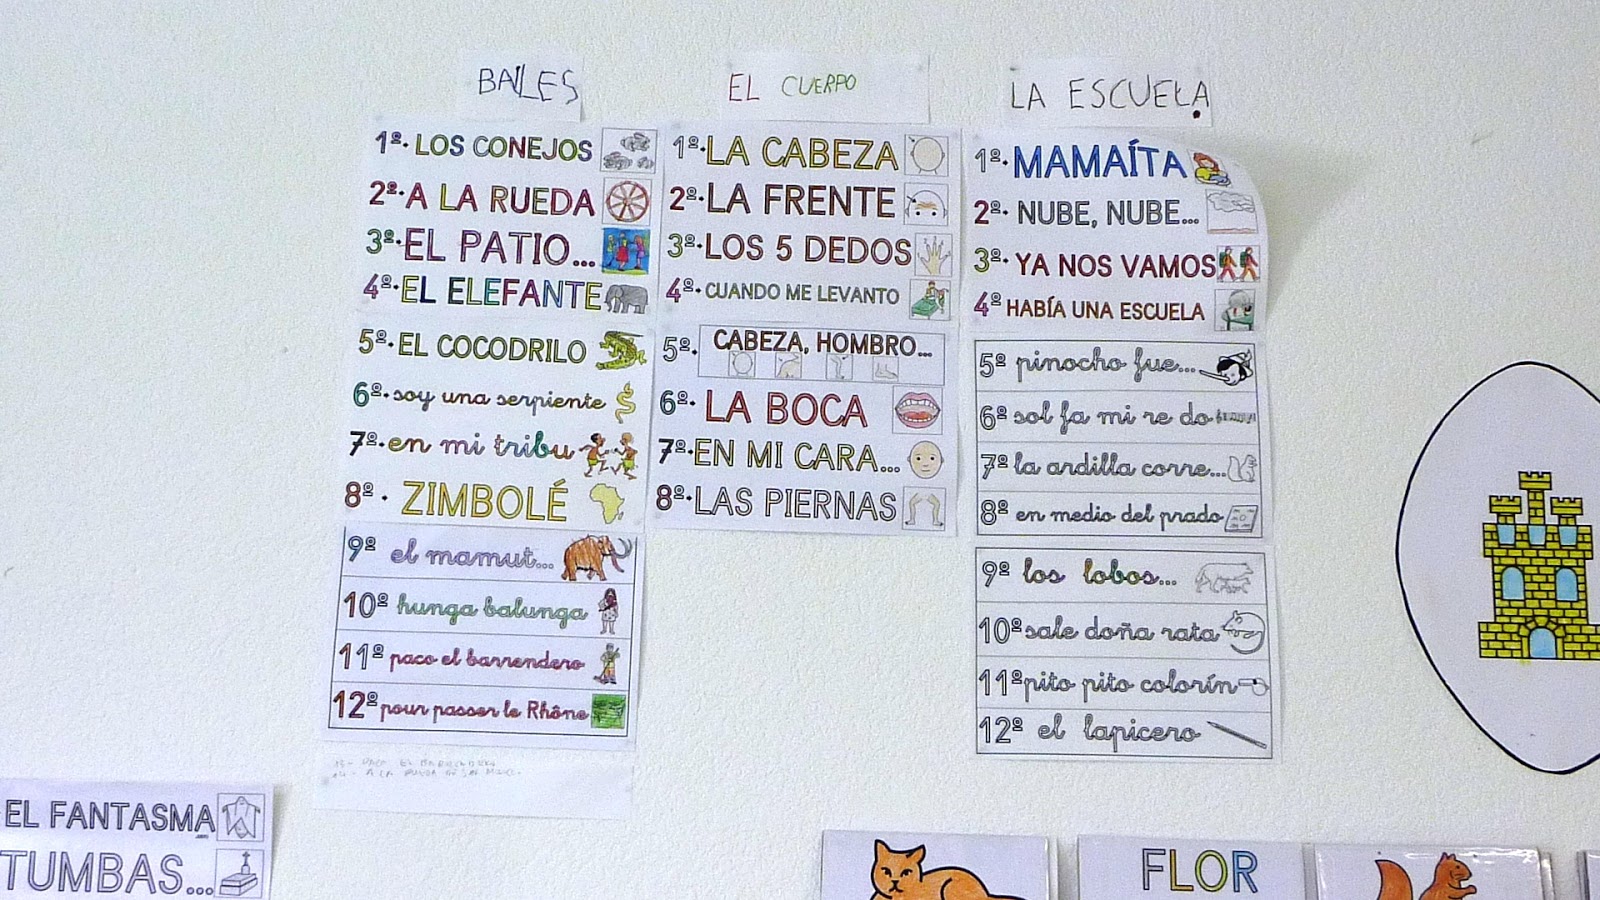 BAILES
1º. LOS CONEJOS
2º. A LA RUEDA
3º. EL PATIO...
4º. EL ELEFANTE
5º. EL COCODRILO
6º. soy una serpiente
7º. en mi tribu
8º. ZIMBOLÉ
9º el mamut...
10º hunga balunga
11º paco el barrendero
12º pour passer le Rhône
EL CUERPO
1º. LA CABEZA
2º. LA FRENTE
3º. LOS 5 DEDOS
4º. CUANDO ME LEVANTO
5º. CABEZA, HOMBRO...
6º. LA BOCA
7º. EN MI CARA...
8º. LAS PIERNAS
LA ESCUELA
1º. MAMAÍTA
2º. NUBE, NUBE...
3º. YA NOS VAMOS
4º HABÍA UNA ESCUELA
5º pinocho fue...
6º sol fa mi re do
7º la ardilla corre...
8º en medio del prado
9º los lobos...
10º sale doña rata
11º pito pito colorín
12º el lapicero
EL FANTASMA
TUMBAS...
FLOR